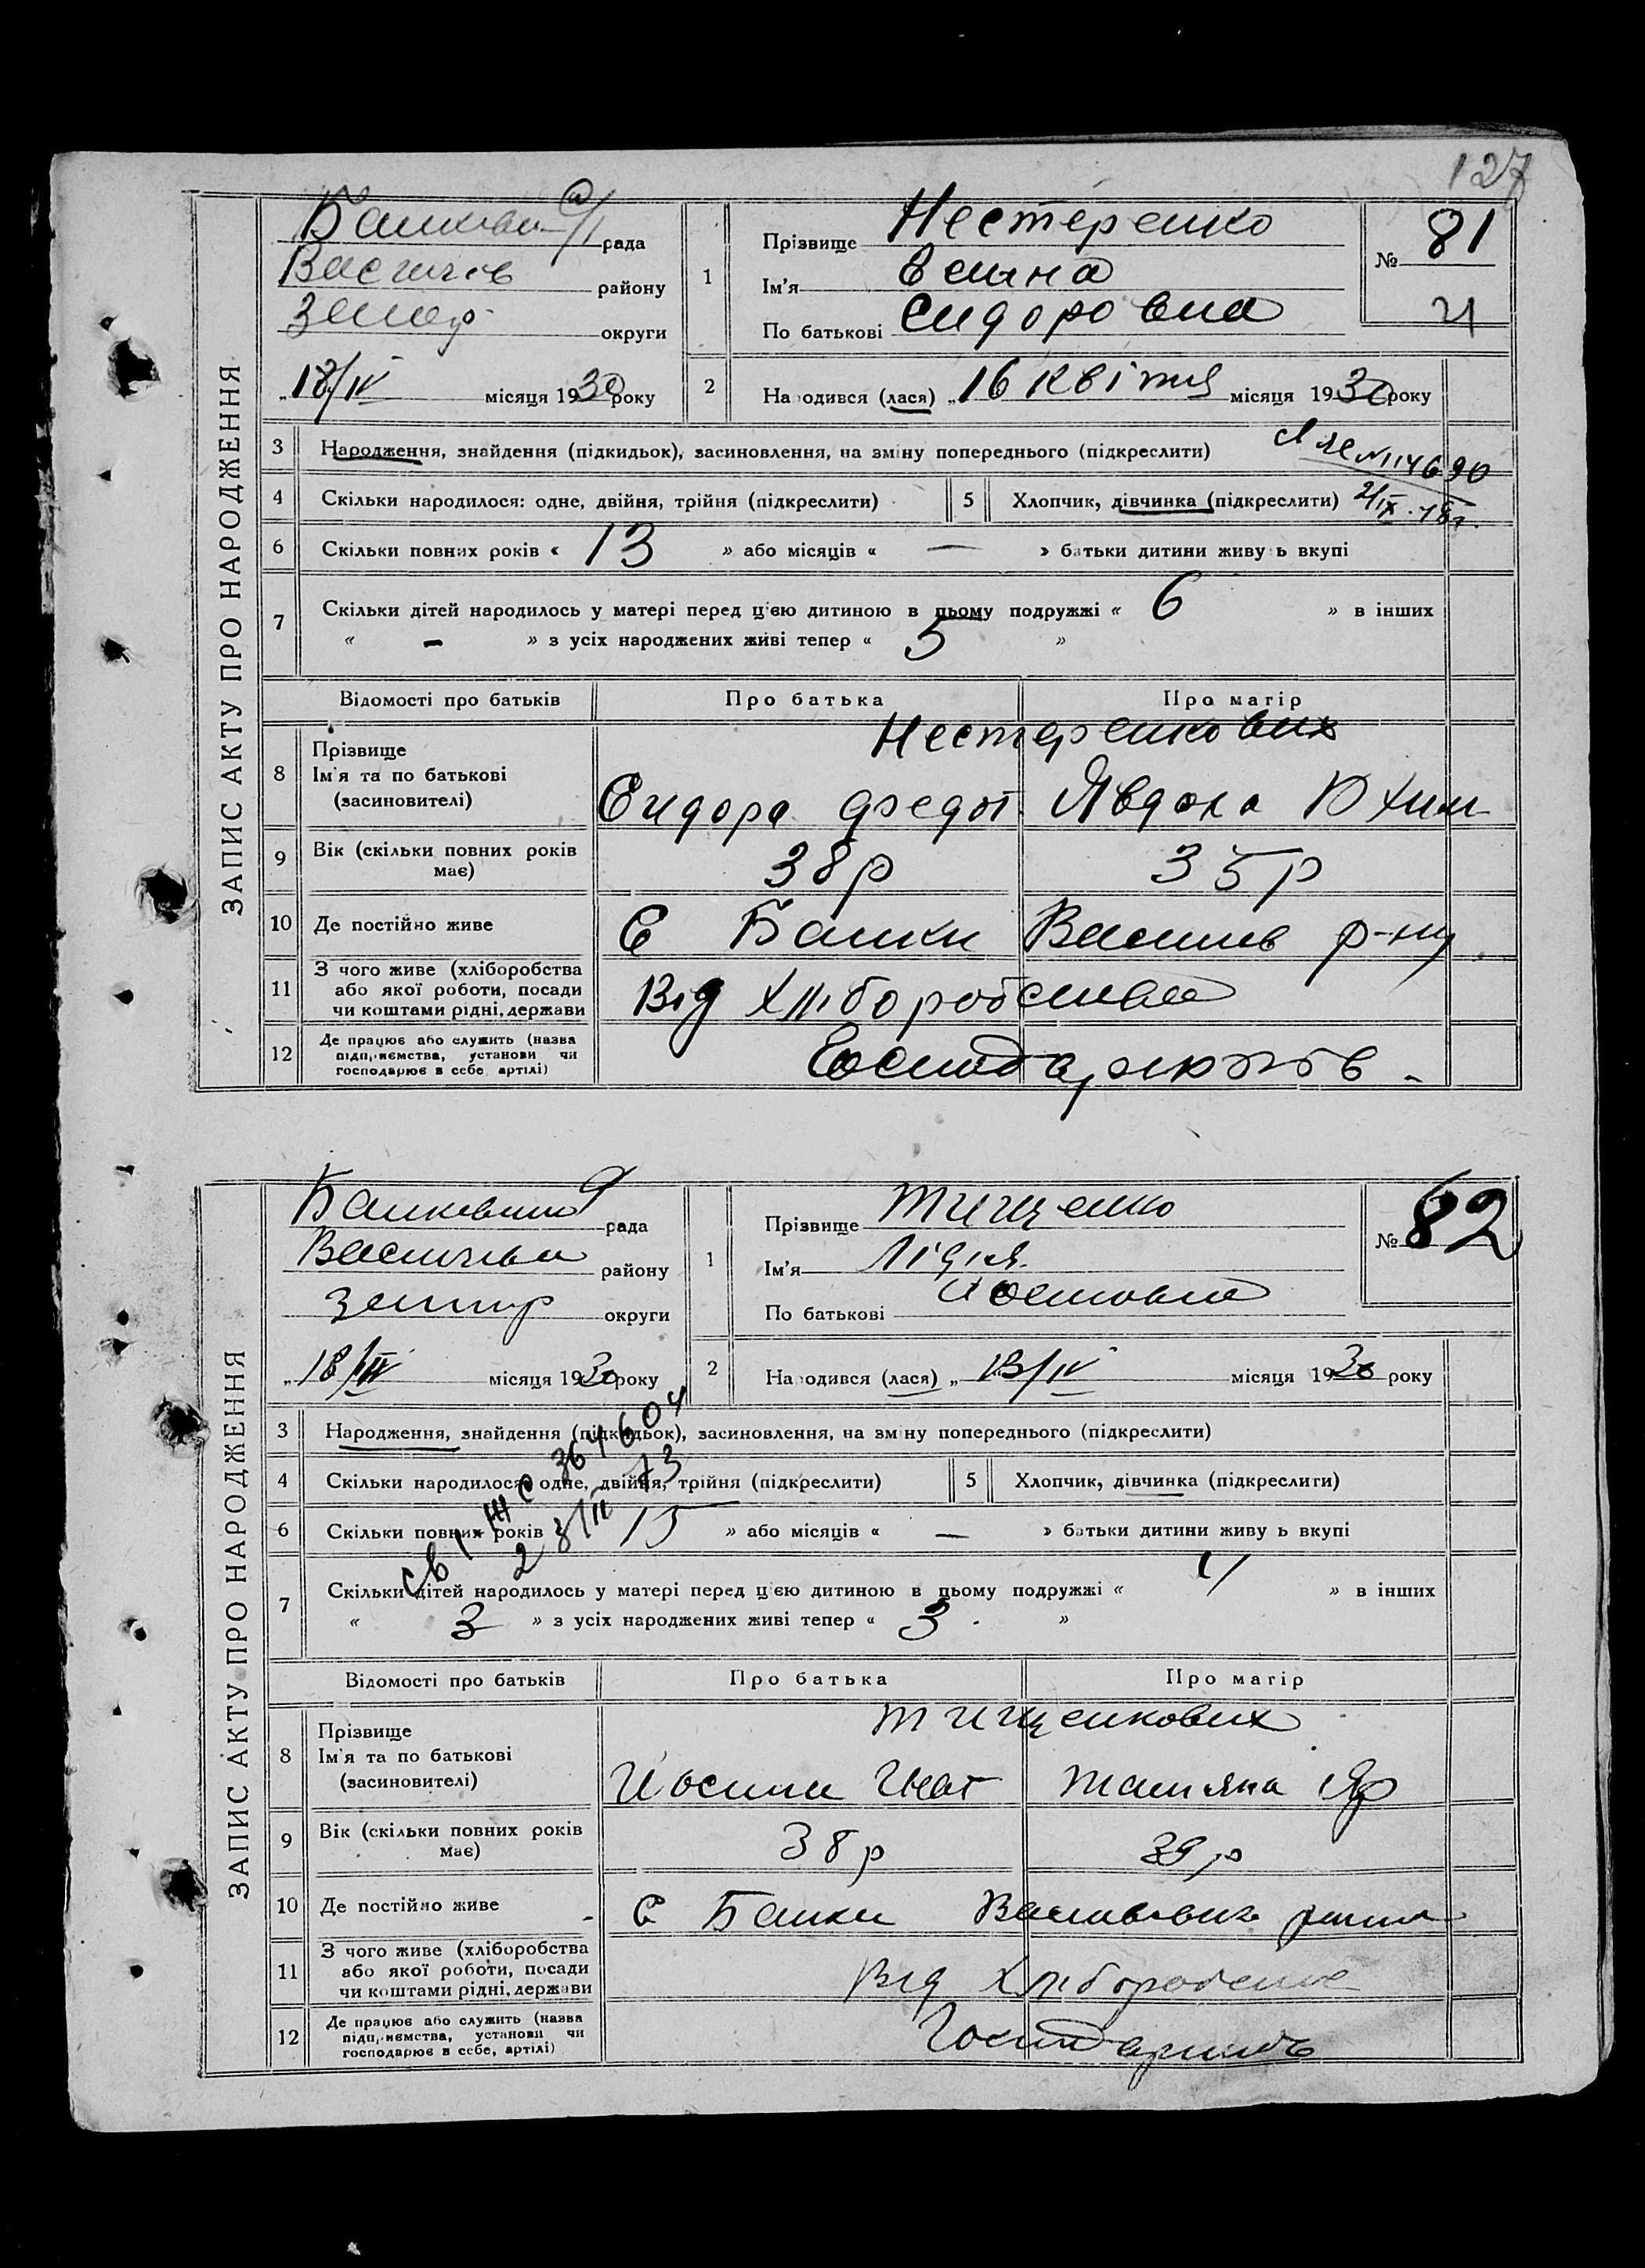 127
ЗАПИС АКТУ ПРО НАРОДЖЕННЯ
рада
району
Запор округи
„18/IV місяця 1930 року
1
Прізвище Нестеренко
Ім'я
По батькові Сидоровна
№ 81
2 Народився (лася) „16 Квітня місяця 1930 року
3 Народження, знайдення (підкидьок), засиновлення, на зміну попереднього (підкреслити)
№ 114690
4 Скільки народилося: одне, двійня, трійня (підкреслити)
5 Хлопчик, дівчинка (підкреслити)
6 Скільки повних років « 13 » або місяців « — » батьки дитини живуть вкупі
7 Скільки дітей народилось у матері перед цією дитиною в цьому подружжі « 6 » в інших
« - » з усіх народжених живі тепер « 5 »
Відомості про батьків Про батька Про матір
8 Прізвище
Ім'я та по батькові
(засиновителі)
Нестеренкових
Сидора Федот Явдоха Юхим
9 Вік (скільки повних років має) 38 р 35 р
10 Де постійно живе С Балки Василів р-ну
11 З чого живе (хліборобства
або якої роботи, посади
чи коштами рідні, держави
Від Хліборобства
12 Де працює або служить (назва
підприємства, установи чи
господарює в себе, артілі)
Господарюють
ЗАПИС АКТУ ПРО НАРОДЖЕННЯ
рада
району
округи
„18/IV місяця 1930 року
1
Прізвище Тищенко
Ім'я Лідія
По батькові
№ 82
2 Народився (лася) „13/IV місяця 1930 року
3 Народження, знайдення (підкидьок), засиновлення, на зміну попереднього (підкреслити)
4 Скільки народилося: одне, двійня, трійня (підкреслити)
5 Хлопчик, дівчинка (підкреслити)
св 1 ЖС 364604
6 Скільки повних років 15 » або місяців « — » батьки дитини живуть вкупі
7 Скільки дітей народилось у матері перед цією дитиною в цьому подружжі « 4 » в інших
« 3 » з усіх народжених живі тепер « 3 »
Відомості про батьків Про батька Про матір
8 Прізвище
Ім'я та по батькові
(засиновителі)
Тищенкових
Йосипа Гнат Татьяна Яр
9 Вік (скільки повних років має) 38 р 39 р
10 Де постійно живе С Балки
11 З чого живе (хліборобства
або якої роботи, посади
чи коштами рідні, держави
Від Хліборобства
12 Де працює або служить (назва
підприємства, установи чи
господарює в себе, артілі)